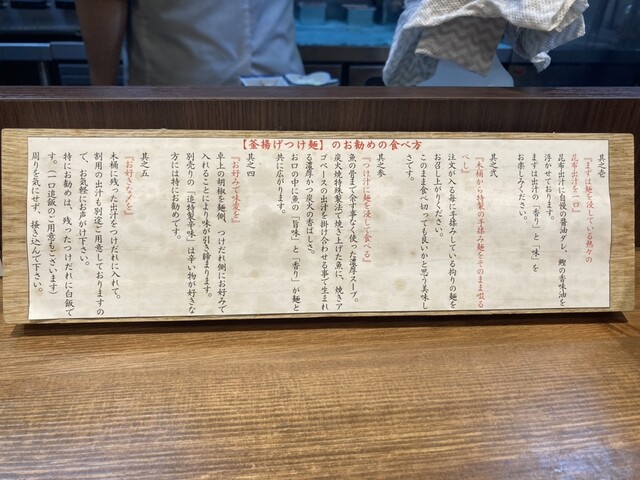 【釜揚げつけ麺】のお勧めの食べ方
其之壱
『まずは麺を浸している熱々の
昆布出汁を一口』
昆布出汁に自慢の醤油ダレ、鰹の香味油を
浮かせております。
まずは出汁の「香り」と「味」を
お楽しみください。
其之弐
『木桶から特製の手揉み麺をそのまま啜る
べし』
注文が入る毎に手揉みしている拘りの麺を
お召し上がりください。
このまま食べ切っても良いかと思う美味し
さです。
其之参
『つけ汁に麺を浸して食べる』
魚の骨まで余す事なく使った濃厚スープ。
炭火焼特殊製法で焼き上げた魚に、焼きア
ゴベースの出汁を掛け合わせる事で生まれ
る濃厚かつ炭火の香ばしさ。
お口の中に魚の「旨味」と「香り」が麺と
共に広がります。
其之四
『お好みで味変を』
卓上の胡椒を麺側、つけだれ側にお好みで
入れることにより味が引き締まります。
別売りの「追特製辛味」は辛い物が好きな
方には特にお勧めです。
其之五
『お好きな〆を』
木桶に残った出汁をつけだれに入れて。
割用の出汁も別途ご用意しておりますの
で、お気軽にお声がけ下さい。
特にお勧めは、残ったつけだれに白飯で
す。（一口追飯のご用意もございます）
周りを気にせず、掻き込んで下さい。